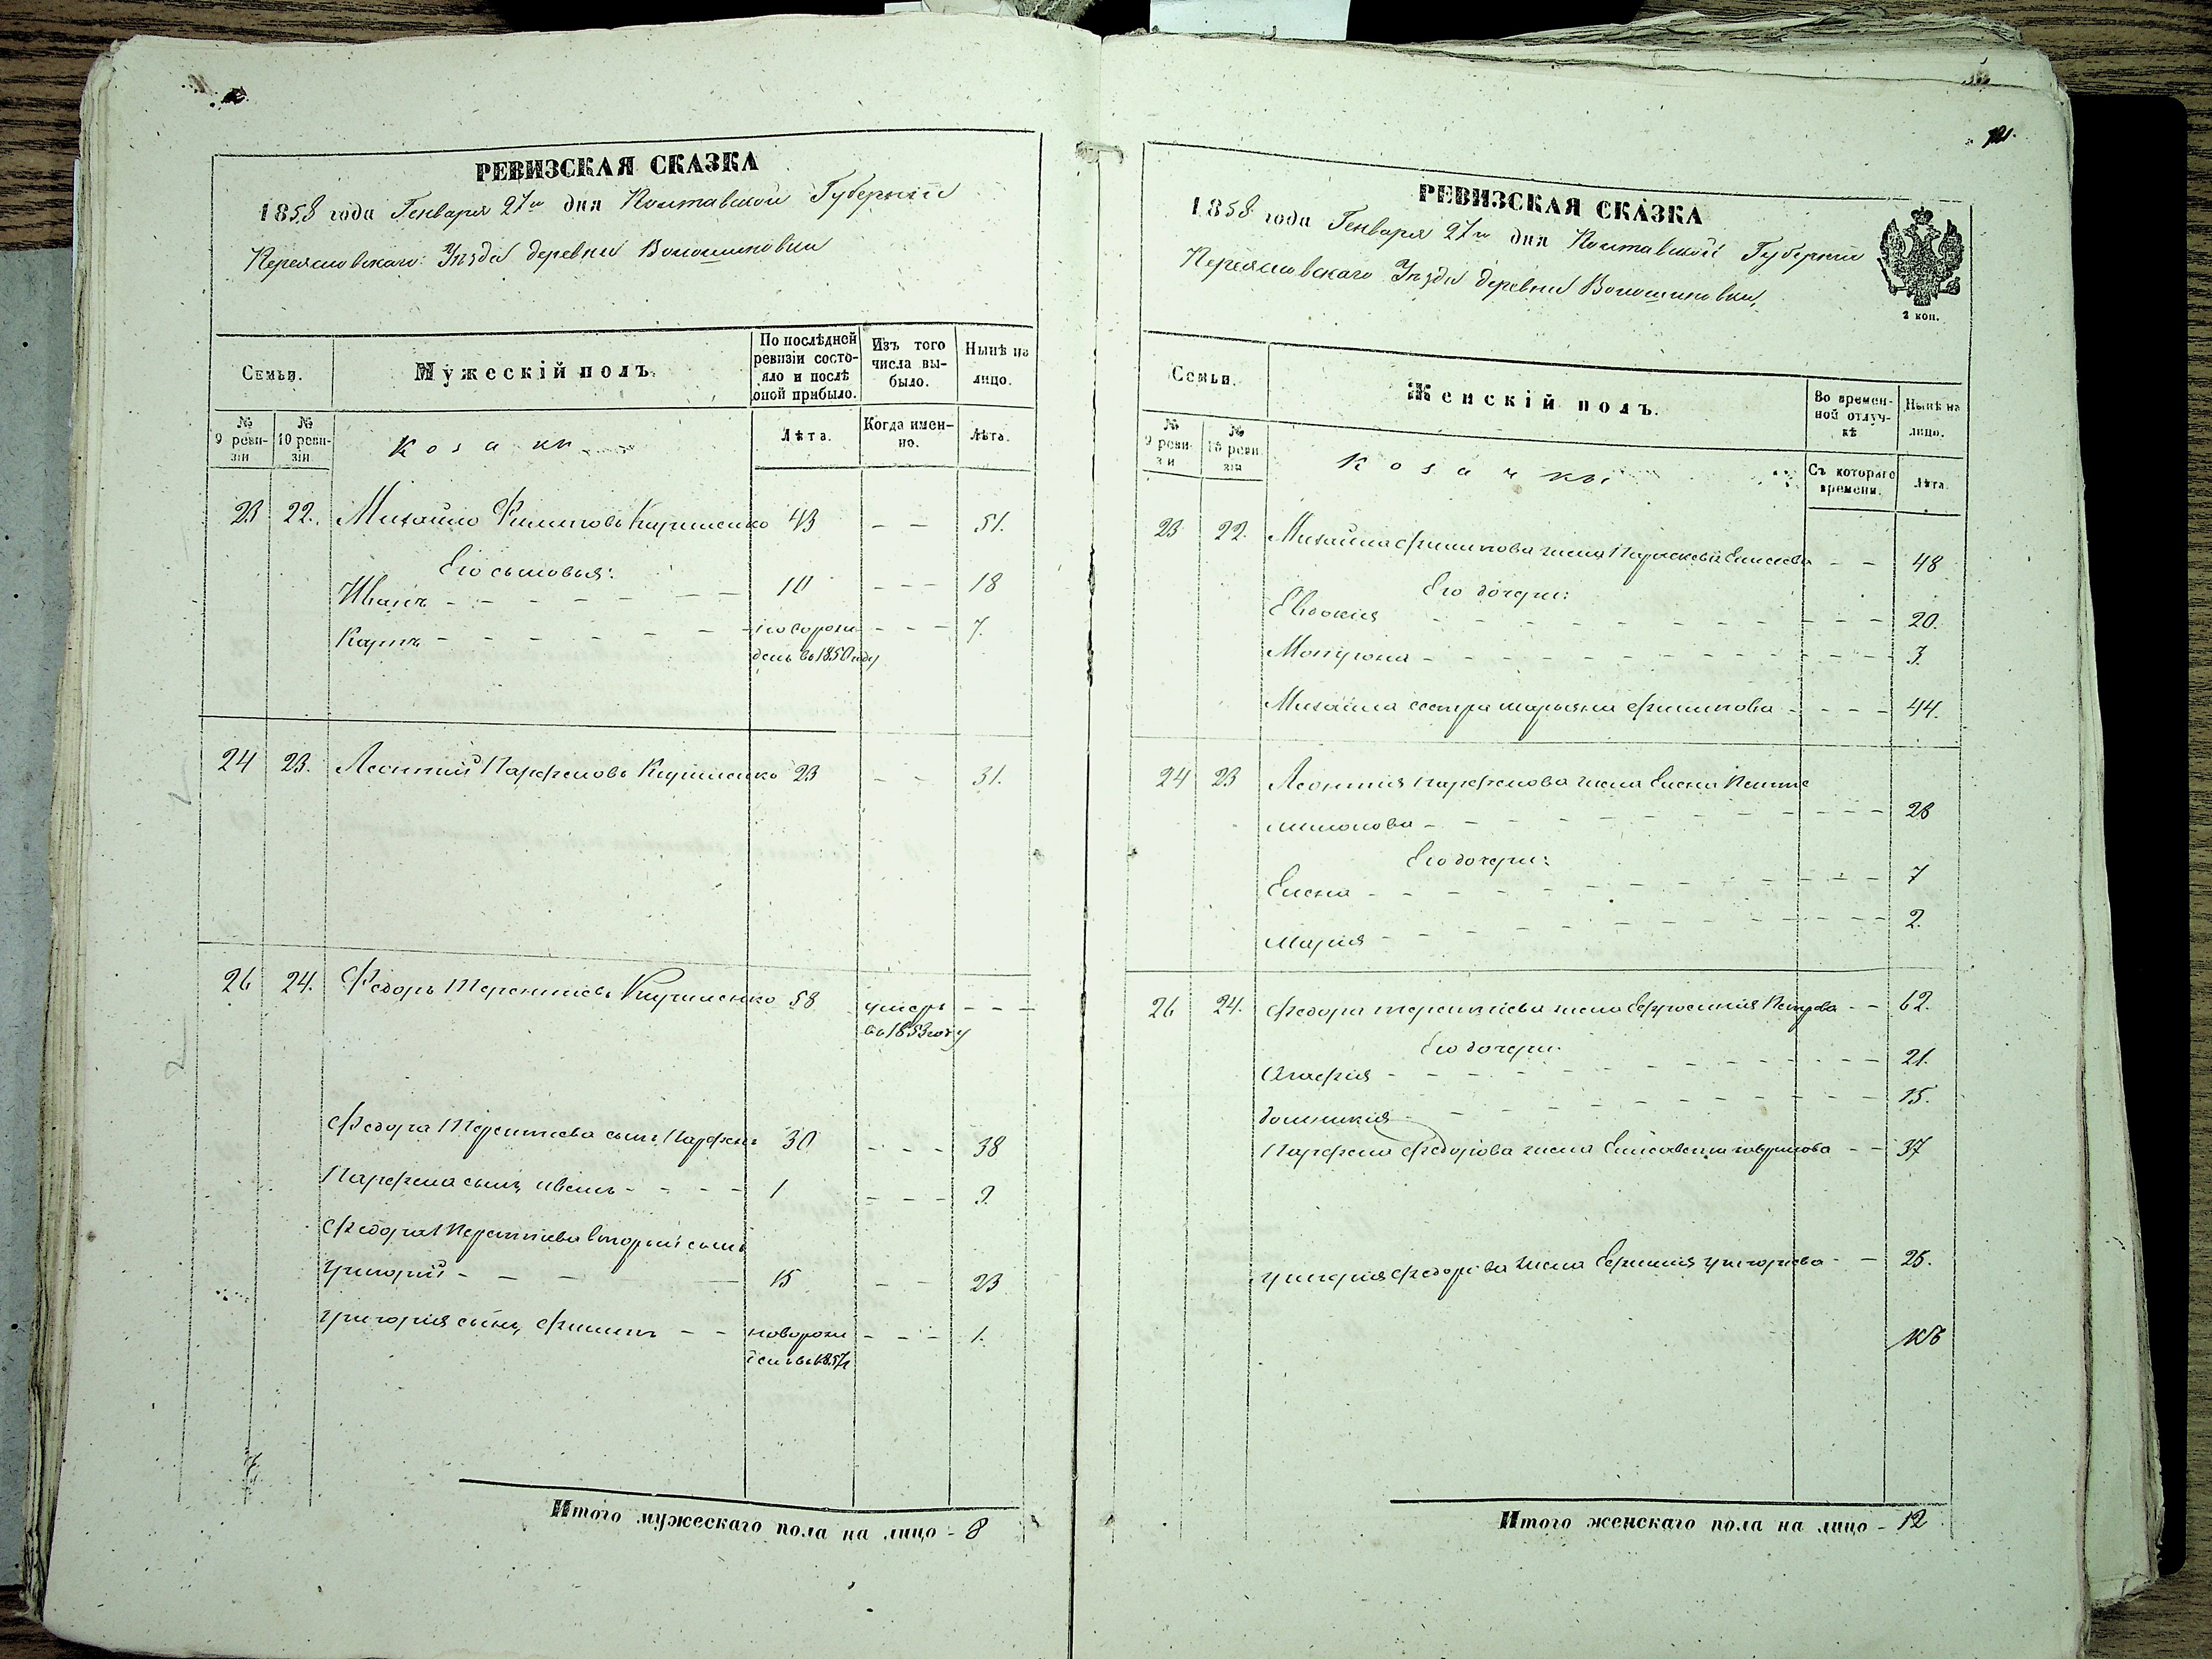 РЕВИЗСКАЯ СКАЗКА
1858 года Генваря 27го дня Полтавской Губернии
Переясловскаго Уезда деревни Волошиновки
Семьи.
Мужескій полъ.
По послѣдней ревизіи состояло и послѣ оной прибыло.
Изъ того числа выбыло.
Нынѣ на лицо.
№ 9 ревизіи
№ 10 ревизіи
Козаки
Лѣта.
Когда именно.
Лѣта.
23 22. Михайло Филиповъ 43 – – 51.
Его сыновья:
Иванъ – – – – – – 10 – – – 18
Карпъ – – – – – – новорожденъ въ 1850 году – – – 7.
24 23. Леонтий Парфеновъ 23 – – 31.
26 24. Федоръ Терентиевъ 58 умеръ въ 1853 году – – –
Федора Терентиева сынъ Парфенъ 30 – – – 38
Парфена сынъ Иванъ – – – – 1 – – – 9.
Федора Терентиева вторый сынъ
Григорий – – – – 15 – – 23
Григория сынъ Филипъ – – новорожденъ въ 1857 – – – 1.
Итого мужескаго пола на лицо – 8
12.
РЕВИЗСКАЯ СКАЗКА
1858 года Генваря 27го дня Полтавской Губернии
Переясловскаго Уезда деревни Волошиновки,
2 коп.
Семьи.
Женскій полъ.
Во временной отлучкѣ
Нынѣ на лицо.
№ 9 ревизіи
№ 10 ревизіи
Козачки
Съ котораго времени.
Лѣта.
23 22. Михайла Филипова жена Параскевия Елисеева – – 48
Его дочери:
Евдокия – – – – – – – – 20.
– – – – – – – – 3.
Михайла сестра Марьяна Филипова – – – – 44.
24 23 Леонтия Парфенова жена Елена
– – – – – – – – 28
Его дочери:
Елена – – – – – – – – 7
Мария – – – – – – – – 2.
26 24. Федора Терентиева жена Ефросиния Петрова – – 62.
Его дочери:
Агафия – – – – – – – – 21.
Домникия – – – – – – – – 15.
Парфена Федорова жена Елисавета Гаврилова – – 37
Григория Федорова жена Ефимия Григориева – – 25.
Итого женскаго пола на лицо – 12